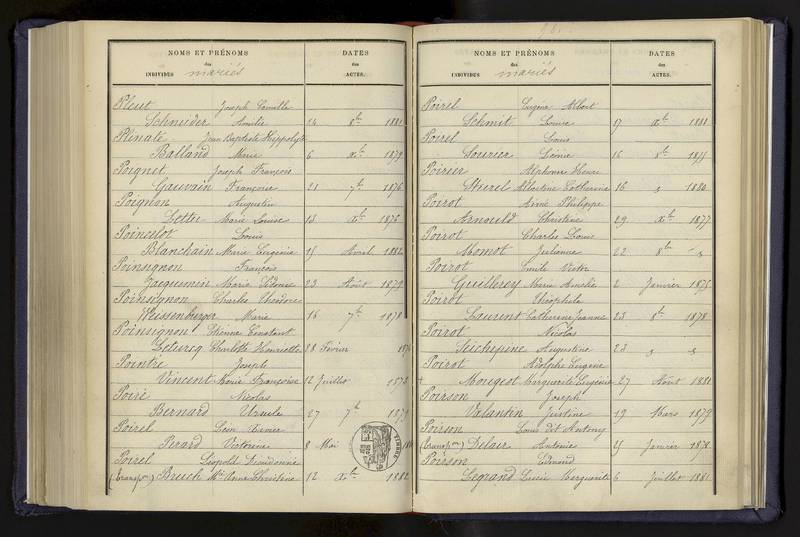 NOMS ET PRÉNOMS DATES
des des
INDIVIDUS mariés ACTES.
Pleut Joseph Camille
Schneider Amélie 14 8bre 1881
Plénate Jean Baptiste Hippolyte
Balland Marie 6 Xbre 1879
Poignet Joseph François
Gauvain Françoise 21 7bre 1876
Poignon Augustin
Marie Louise 13 Xbre 1875
Poincelot Louis
Blanchain Marie Eugénie 15 Avril 1882
Poinsignon François
Jacquemin Marie 23 Août 1879
Poinsignon Charles Théodore
Weissenburger Marie 16 7bre 1878
Poinsignon Etienne Constant
Leclercq Charlotte Henriette 28 Février
Pointré Joseph
Vincent Marie Françoise 12 Juillet 1873
Poiré Nicolas
Bernard Ursule 27 7bre 1879
Poirel Léon Xavier
Perard Victorine 8 Mai
Poirel Léopold Dieudonné
(transp.on) Bruch Mie Anne Christine 12 Xbre 1882
NOMS ET PRÉNOMS DATES
des des
INDIVIDUS mariés ACTES.
Poirel Eugène Albert
Schmit Louise 17 Xbre 1881
Poirel Louis
Léonie 16 8bre 1875
Poirier Alphonse
Albertine Catherine 16 1880
Poirot Aimé Philippe
Arnould Christine 29 Xbre 1877
Poirot Charles Louis
Momot Julienne 22 8bre
Poirot Emile Victor
Guillerey Marie Amélie 2 Janvier 1875
Poirot Théophile
Laurent Catherine Jeanne 23 8bre 1878
Poirot Nicolas
Seichepine Augustine 23
Poirot Adolphe Eugène
+ Mougeot Marguerite Eugénie 27 Août 1881
Poirson Joseph
Valantin Justine 19 Mars 1879
Poirson Louis dit Antony
(transp.on) Delair Antonie 25 Janvier 1878
Poirson Edmond
Legrand Lucie Marguerite 6 Juillet 1881